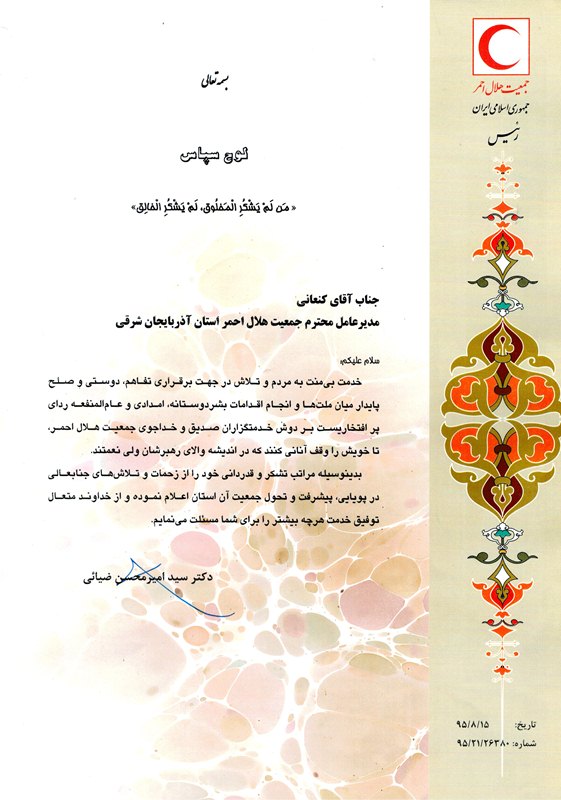 جمعیت هلال احمر
جمهوری اسلامی ایران
رئیس
بسمه تعالی
لوح سپاس
« مَن لَمْ یَشْکُرِ الْمَخْلُوق، لَمْ یَشْکُرِ الْخالِق»
جناب آقای کنعانی
مدیرعامل محترم جمعیت هلال احمر استان آذربایجان شرقی
سلام علیکم؛
خدمت بی‌منت به مردم و تلاش در جهت برقراری تفاهم، دوستی و صلح
پایدار میان ملت‌ها و انجام اقدامات بشردوستانه، امدادی و عام‌المنفعه ردای
پر افتخاریست بر دوش خدمتگزاران صدیق و خداجوی جمعیت هلال احمر،
تا خویش را وقف آنانی کنند که در اندیشه والای رهبرشان ولی نعمتند.
بدینوسیله مراتب تشکر و قدردانی خود را از زحمات و تلاش‌های جنابعالی
در پویایی، پیشرفت و تحول جمعیت آن استان اعلام نموده و از خداوند متعال
توفیق خدمت هرچه بیشتر را برای شما مسئلت می‌نمایم.
دکتر سید امیرمحسن ضیائی
تاریخ: ۹۵/۸/۱۵
شماره: ۹۵/۲۱/۲۶۳۸۰